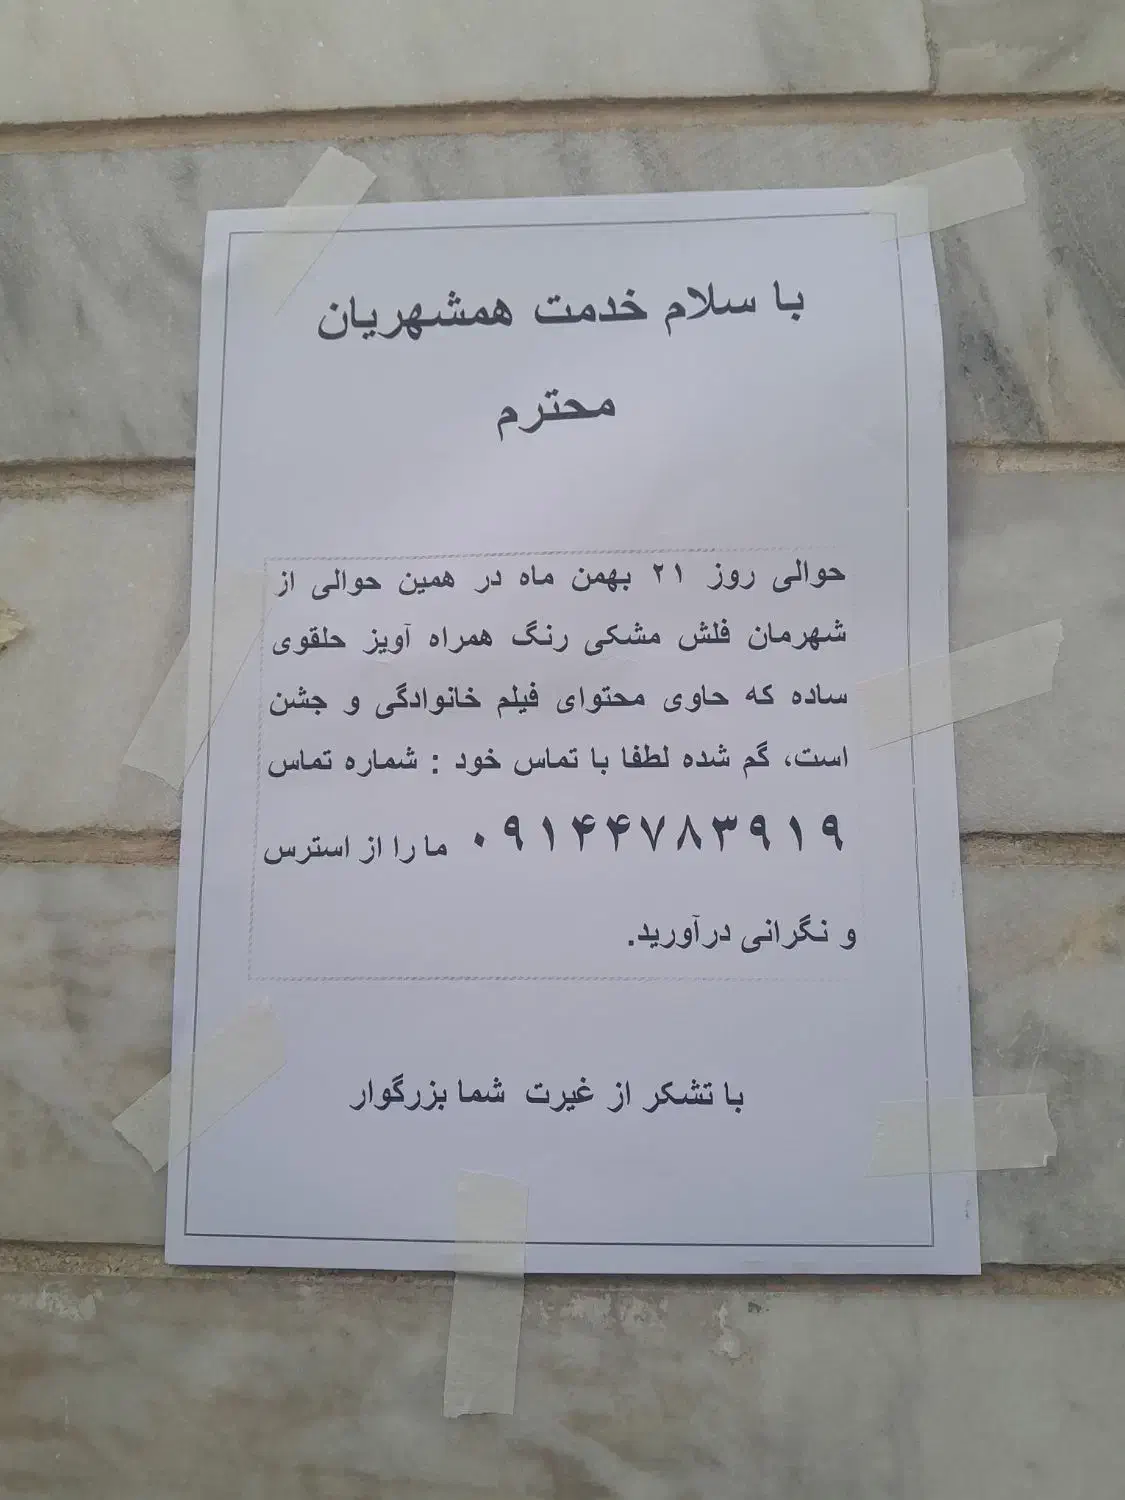 با سلام خدمت همشهریان
محترم
حوالی روز ۲۱ بهمن ماه در همین حوالی از
شهرمان فلش مشکی رنگ همراه آویز حلقوی
ساده که حاوی محتوای فیلم خانوادگی و جشن
است، گم شده لطفا با تماس خود : شماره تماس
۰۹۱۴۴۷۸۳۹۱۹ ما را از استرس
و نگرانی درآورید.
با تشکر از غیرت شما بزرگوار